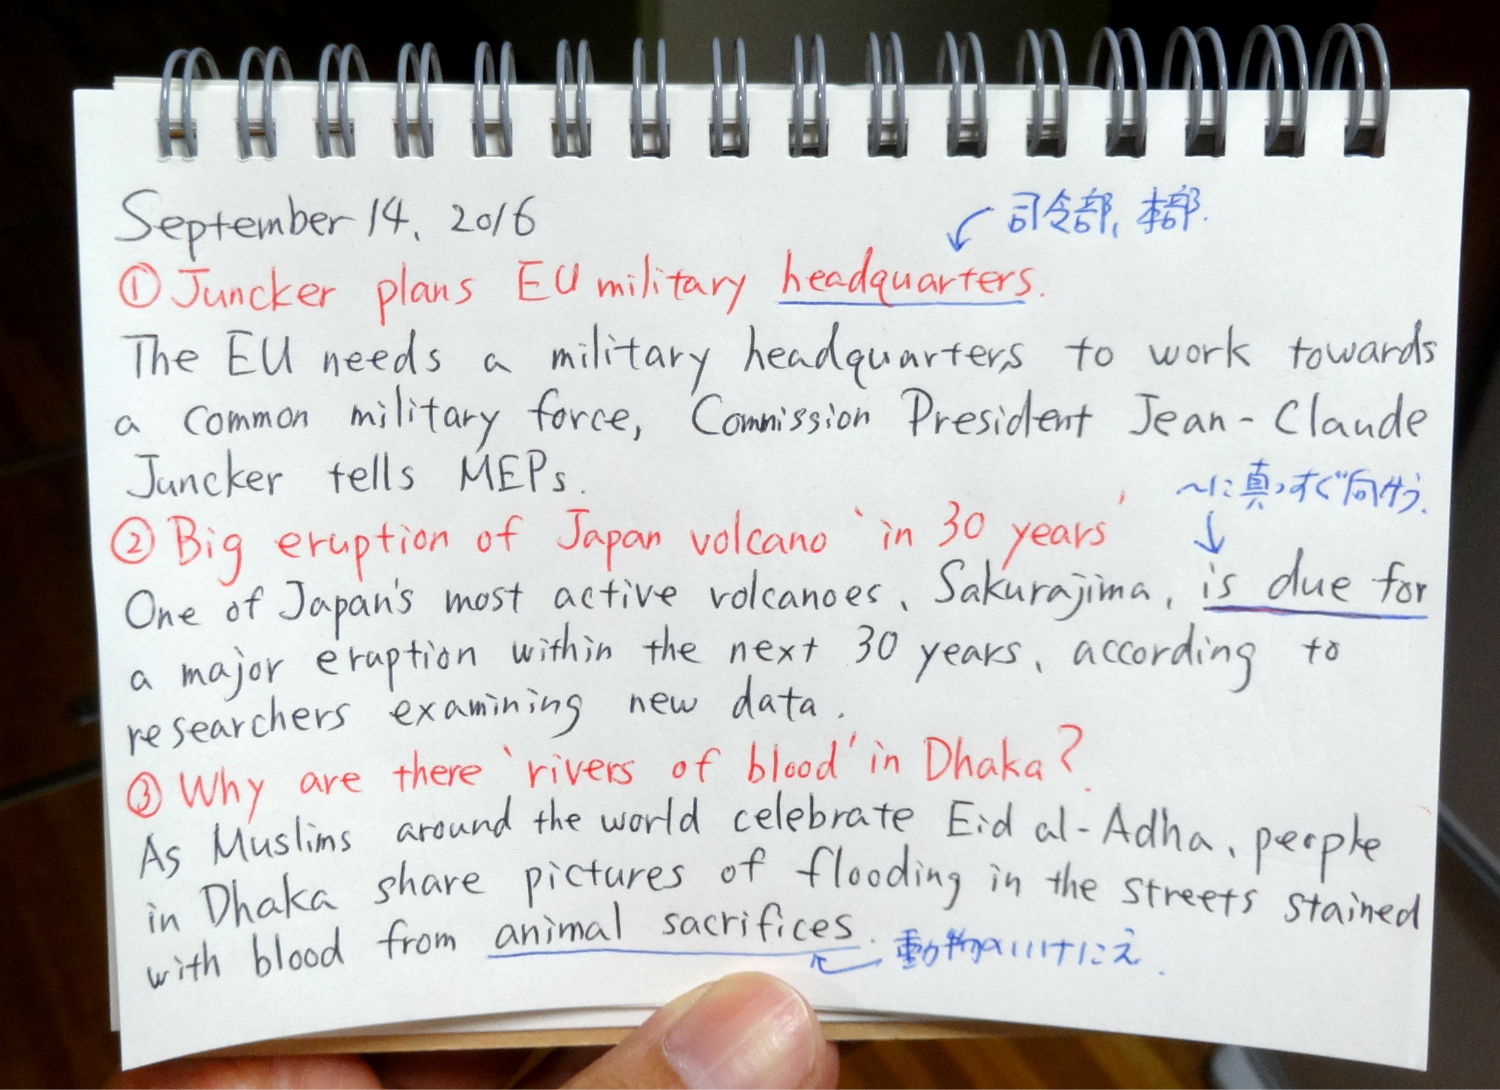 September 14, 2016
司令部, 本部.
① Juncker plans EU military headquarters.
The EU needs a military headquarters to work towards
a common military force, Commission President Jean-Claude
Juncker tells MEPs.
〜に真っすぐ向かう.
② Big eruption of Japan volcano 'in 30 years'
One of Japan's most active volcanoes, Sakurajima, is due for
a major eruption within the next 30 years, according to
researchers examining new data.
③ Why are there 'rivers of blood' in Dhaka?
As Muslims around the world celebrate Eid al-Adha, perple
in Dhaka share pictures of flooding in the streets stained
with blood from animal sacrifices.
動物のいけにえ.